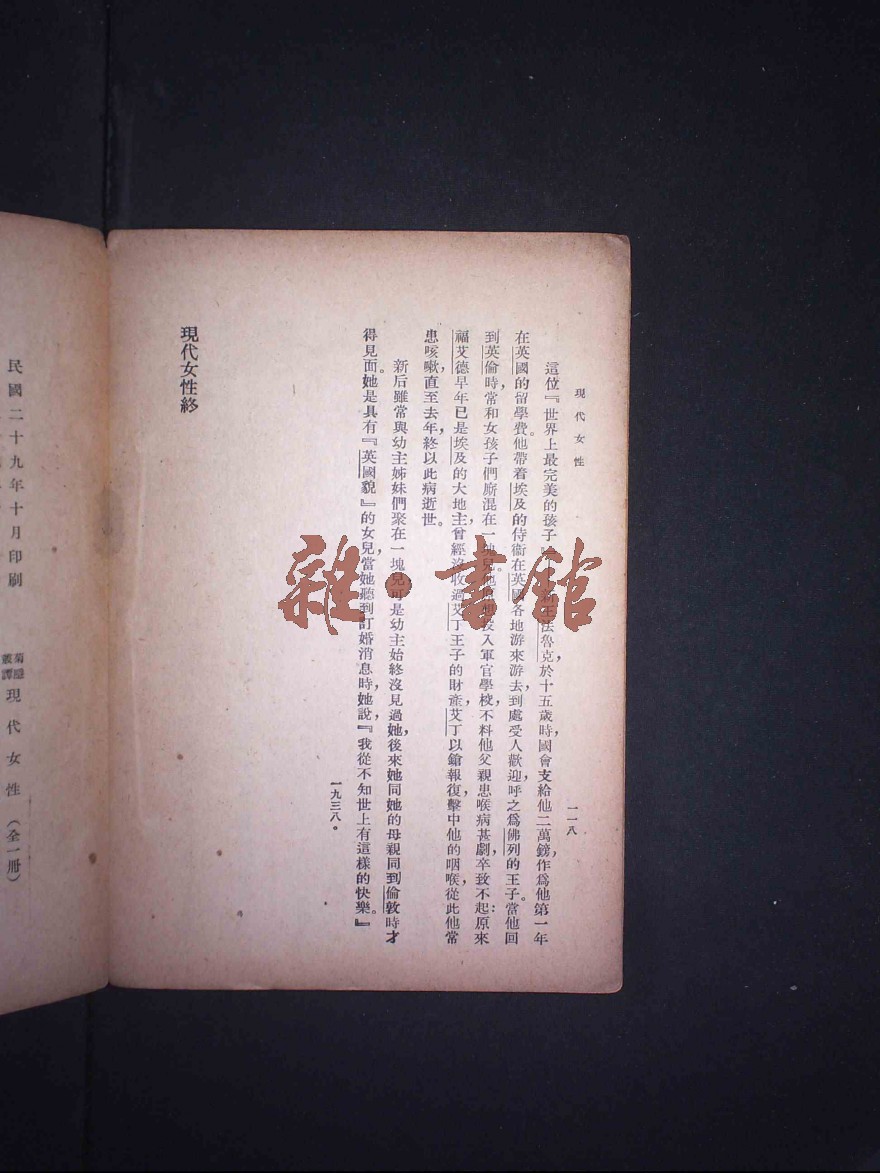 現代女性
一一八
這位『世界上最完美的孩子』王法魯克，於十五歲時，國會支給他二萬鎊，作爲他第一年
在英國的留學費。他帶着埃及的侍衞在英國各地游來游去，到處受人歡迎，呼之爲佛列的王子。當他回
到英倫時，常和女孩子們廝混在一塊兒。他投入軍官學校，不料他父親患喉病甚劇，卒致不起：原來
福艾德早年已是埃及的大地主，曾經沒收過艾丁王子的財產，艾丁以鎗報復，擊中他的咽喉，從此他常
患咳嗽，直至去年，終以此病逝世。
新后雖常與幼主姊妹們聚在一塊兒，可是幼主始終沒見過她，後來她同她的母親同到倫敦時才
得見面。她是具有『英國貌』的女兒，當她聽到訂婚消息時，她說，『我從不知世上有這樣的快樂。』
一九三八。
現代女性終
民國二十九年十月印刷
現代女性（全一册）
雜·書館